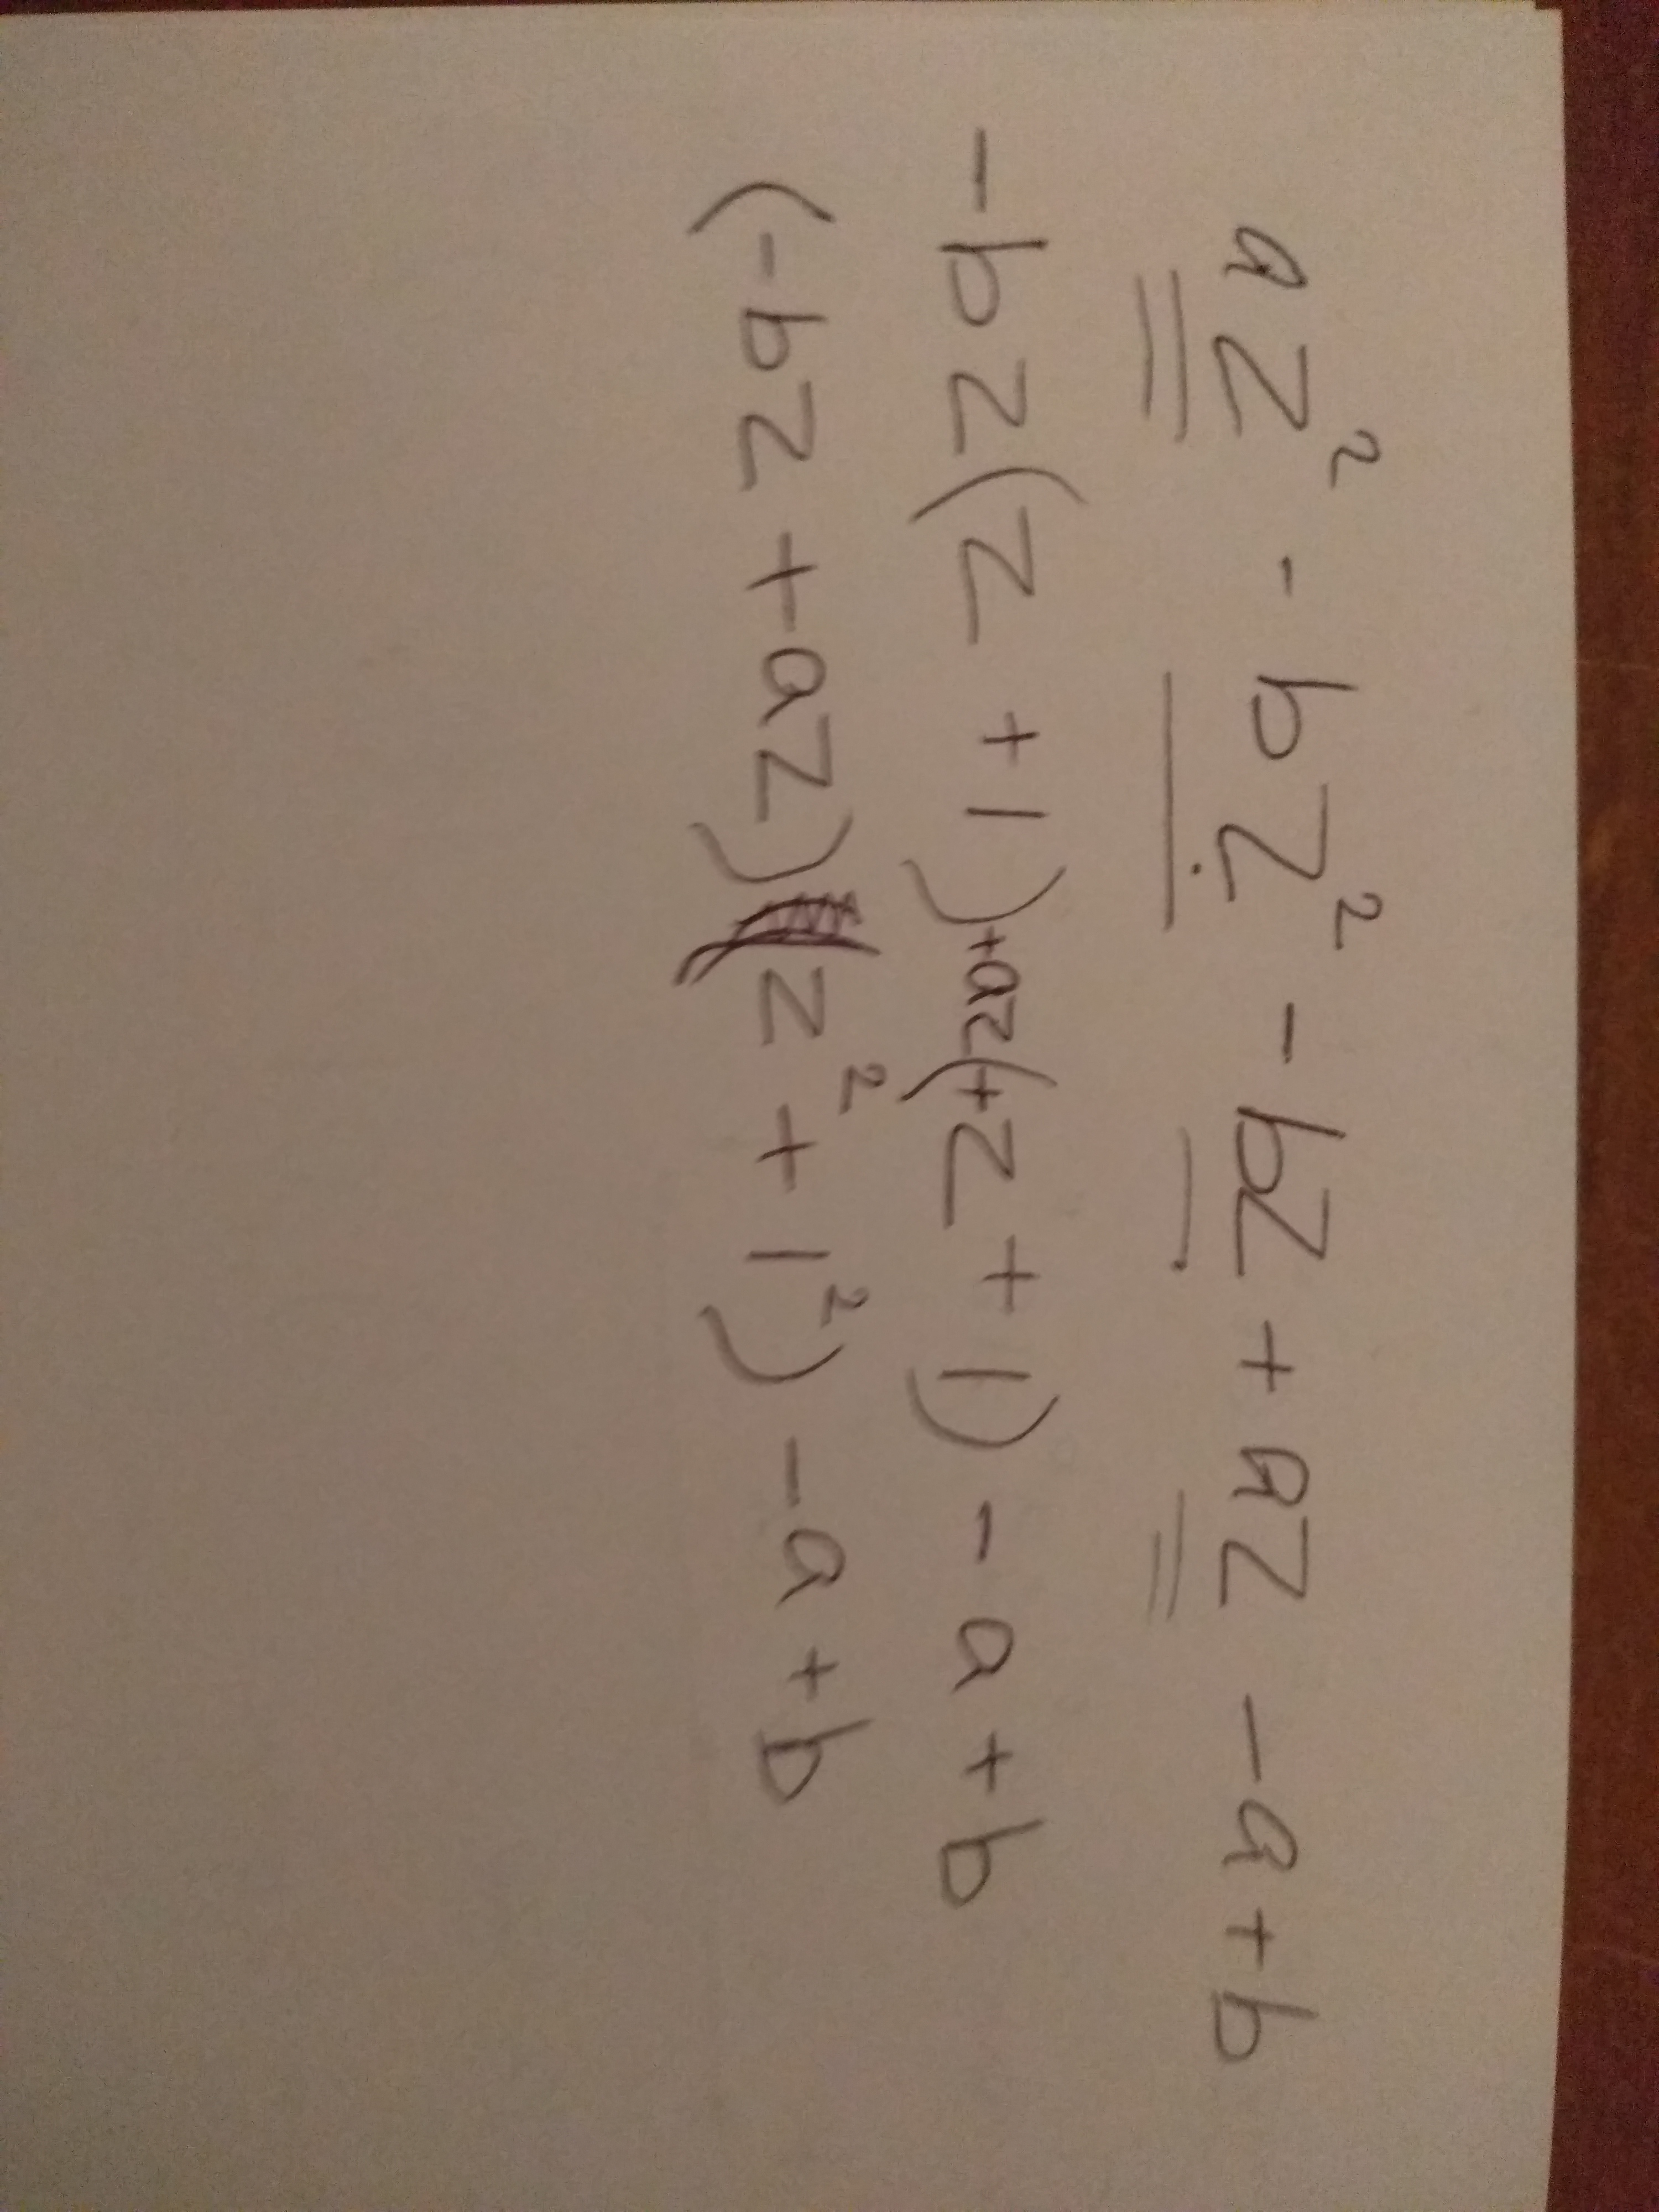 az² - bz² - bz + az - a + b
-bz(z + 1) + az(+z + 1) - a + b
(-bz + az)(z² + 1²) - a + b